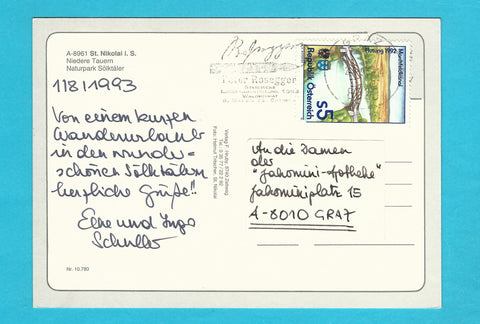 A-8961 St. Nikolai I. S.
Niedere Tauern
Naturpark Sölktäler
11811993
Von einem kurzen
Wanderurlaub
in den wunder=
schönen Sölktälern
herzliche Grüße!!
und Inge
Nr. 10.780
Verlag F. Hruby, 8740 Zeltweg
Foto: Hellmut Thiecher, St. Nikolai
Peter Rosegger
Republik Österreich
S5
1992
An die Damen
der
"Jakomini-Apotheke"
Jakominiplatz 15
A-8010 GRAZ